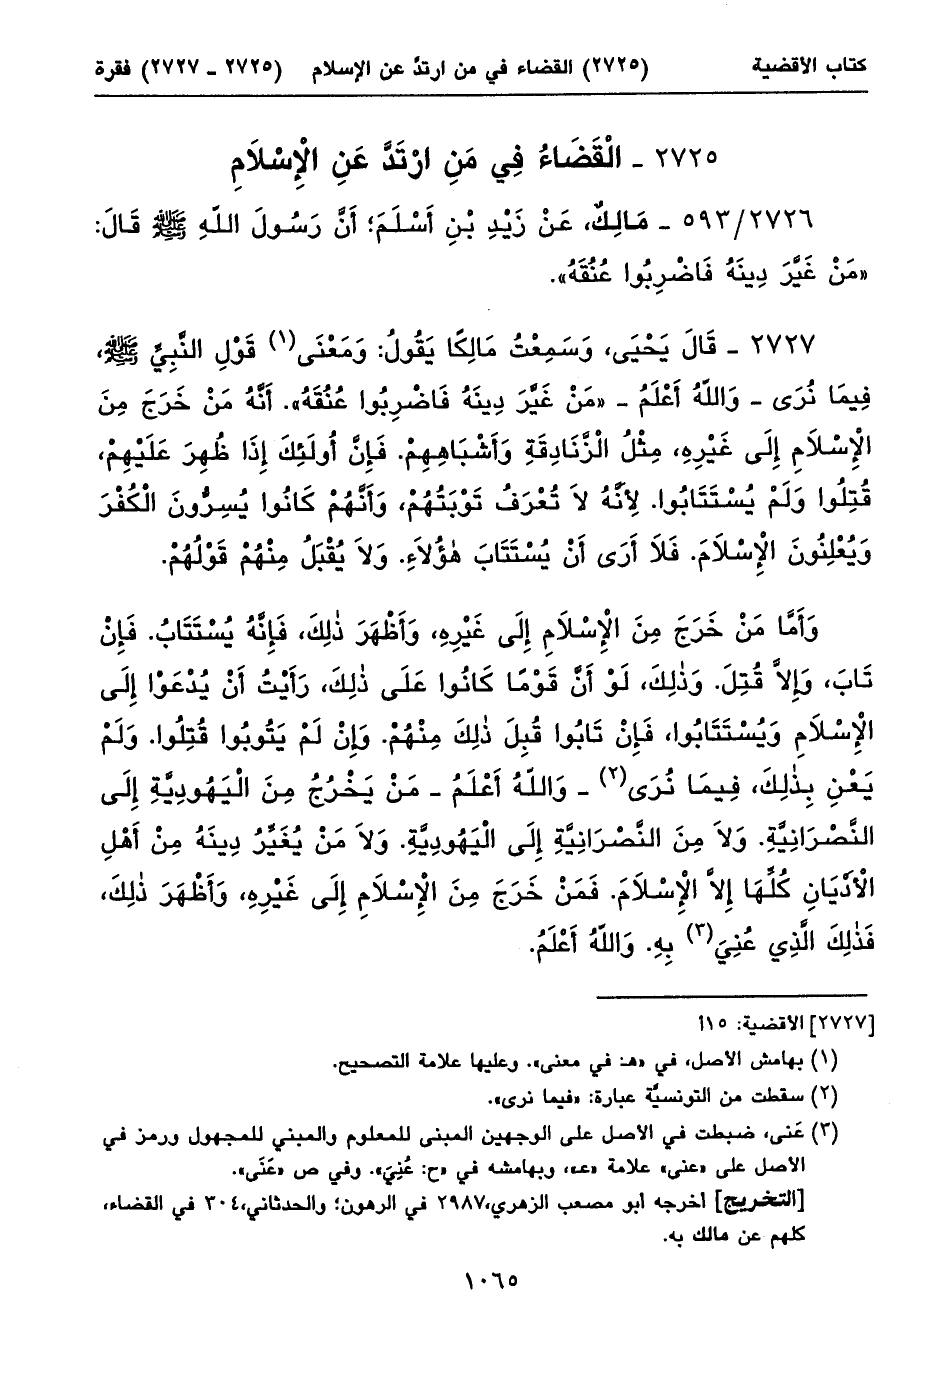 كتاب الأقضية (٢٧٢٥) القضاء في من ارتدّ عن الإسلام (٢٧٢٥ - ٢٧٢٧) فقرة
٢٧٢٥ - الْقَضَاءُ فِي مَنِ ارْتَدَّ عَنِ الْإِسْلَامِ
٥٩٣/٢٧٢٦ - مَالِكٌ، عَنْ زَيْدِ بْنِ أَسْلَمَ؛ أَنَّ رَسُولَ اللَّهِ ﷺ قَالَ:
«مَنْ غَيَّرَ دِينَهُ فَاضْرِبُوا عُنُقَهُ».
٢٧٢٧ - قَالَ يَحْيَى، وَسَمِعْتُ مَالِكًا يَقُولُ: وَمَعْنَى(١) قَوْلِ النَّبِيِّ ﷺ،
فِيمَا نُرَى - وَاللَّهُ أَعْلَمُ - «مَنْ غَيَّرَ دِينَهُ فَاضْرِبُوا عُنُقَهُ». أَنَّهُ مَنْ خَرَجَ مِنَ
الْإِسْلَامِ إِلَى غَيْرِهِ، مِثْلُ الزَّنَادِقَةِ وَأَشْبَاهِهِمْ. فَإِنَّ أُولَئِكَ إِذَا ظُهِرَ عَلَيْهِمْ،
قُتِلُوا وَلَمْ يُسْتَتَابُوا. لِأَنَّهُ لاَ تُعْرَفُ تَوْبَتُهُمْ، وَأَنَّهُمْ كَانُوا يُسِرُّونَ الْكُفْرَ
وَيُعْلِنُونَ الْإِسْلَامَ. فَلَا أَرَى أَنْ يُسْتَتَابَ هٰؤُلاَءِ. وَلاَ يُقْبَلُ مِنْهُمْ قَوْلُهُمْ.
وَأَمَّا مَنْ خَرَجَ مِنَ الْإِسْلَامِ إِلَى غَيْرِهِ، وَأَظْهَرَ ذٰلِكَ، فَإِنَّهُ يُسْتَتَابُ. فَإِنْ
تَابَ، وَإِلاَّ قُتِلَ. وَذٰلِكَ، لَوْ أَنَّ قَوْمًا كَانُوا عَلَى ذٰلِكَ، رَأَيْتُ أَنْ يُدْعَوْا إِلَى
الْإِسْلَامِ وَيُسْتَتَابُوا، فَإِنْ تَابُوا قُبِلَ ذٰلِكَ مِنْهُمْ. وَإِنْ لَمْ يَتُوبُوا قُتِلُوا. وَلَمْ
يَعْنِ بِذٰلِكَ، فِيمَا نُرَى(٢) - وَاللَّهُ أَعْلَمُ - مَنْ يَخْرُجُ مِنَ الْيَهُودِيَّةِ إِلَى
النَّصْرَانِيَّةِ. وَلاَ مِنَ النَّصْرَانِيَّةِ إِلَى الْيَهُودِيَّةِ. وَلاَ مَنْ يُغَيِّرُ دِينَهُ مِنْ أَهْلِ
الْأَدْيَانِ كُلِّهَا إِلاَّ الْإِسْلَامَ. فَمَنْ خَرَجَ مِنَ الْإِسْلَامِ إِلَى غَيْرِهِ، وَأَظْهَرَ ذٰلِكَ،
فَذٰلِكَ الَّذِي عُنِيَ(٣) بِهِ. وَاللَّهُ أَعْلَمُ.
[٢٧٢٧] الأقضية: ١٥أ
(١) بهامش الأصل، في «هـ: في معنى». وعليها علامة التصحيح.
(٢) سقطت من التونسيّة عبارة: «فيما نرى».
(٣) عَنى، ضبطت في الأصل على الوجهين المبنى للمعلوم والمبني للمجهول ورمز في
الأصل على «عنى» علامة «عـ»، وبهامشه في «ح: عُنِيَ». وفي ص «عَنَى».
[التخريج] أخرجه أبو مصعب الزهري،٢٩٨٧ في الرهون؛ والحدثاني،٣٠٤ في القضاء،
كلهم عن مالك به.
١٠٦٥